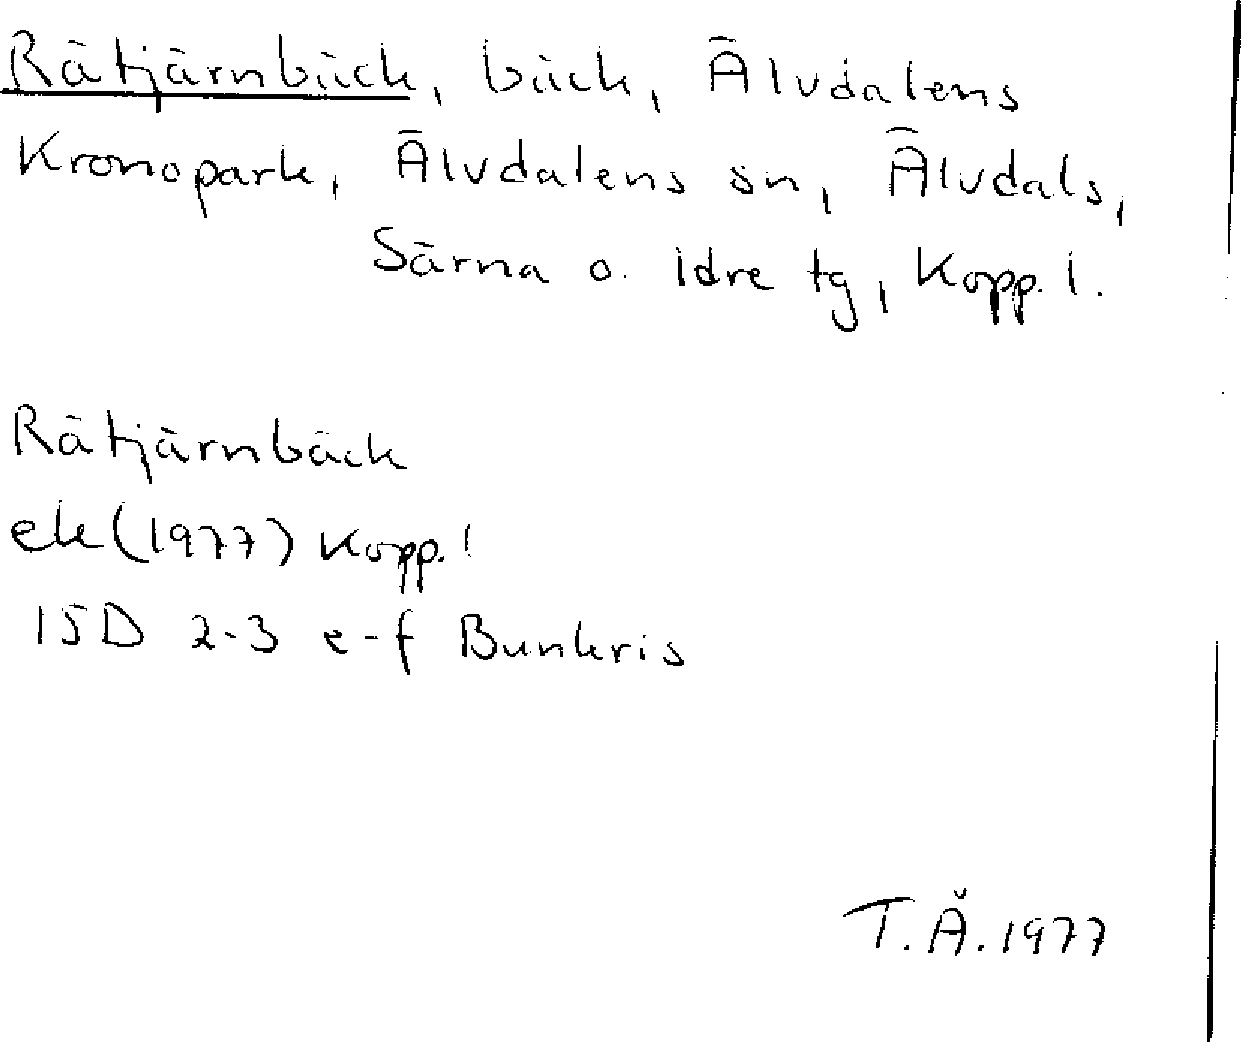 Rätjärnbäck, bäck, Älvdalens
Kronopark, Älvdalens sn, Älvdals,
Särna o. Idre tg, Kopp. l.
Rätjärnbäck
ek (1977) Kopp. l
15D 2-3 e-f Bunkris
T.Å. 1977